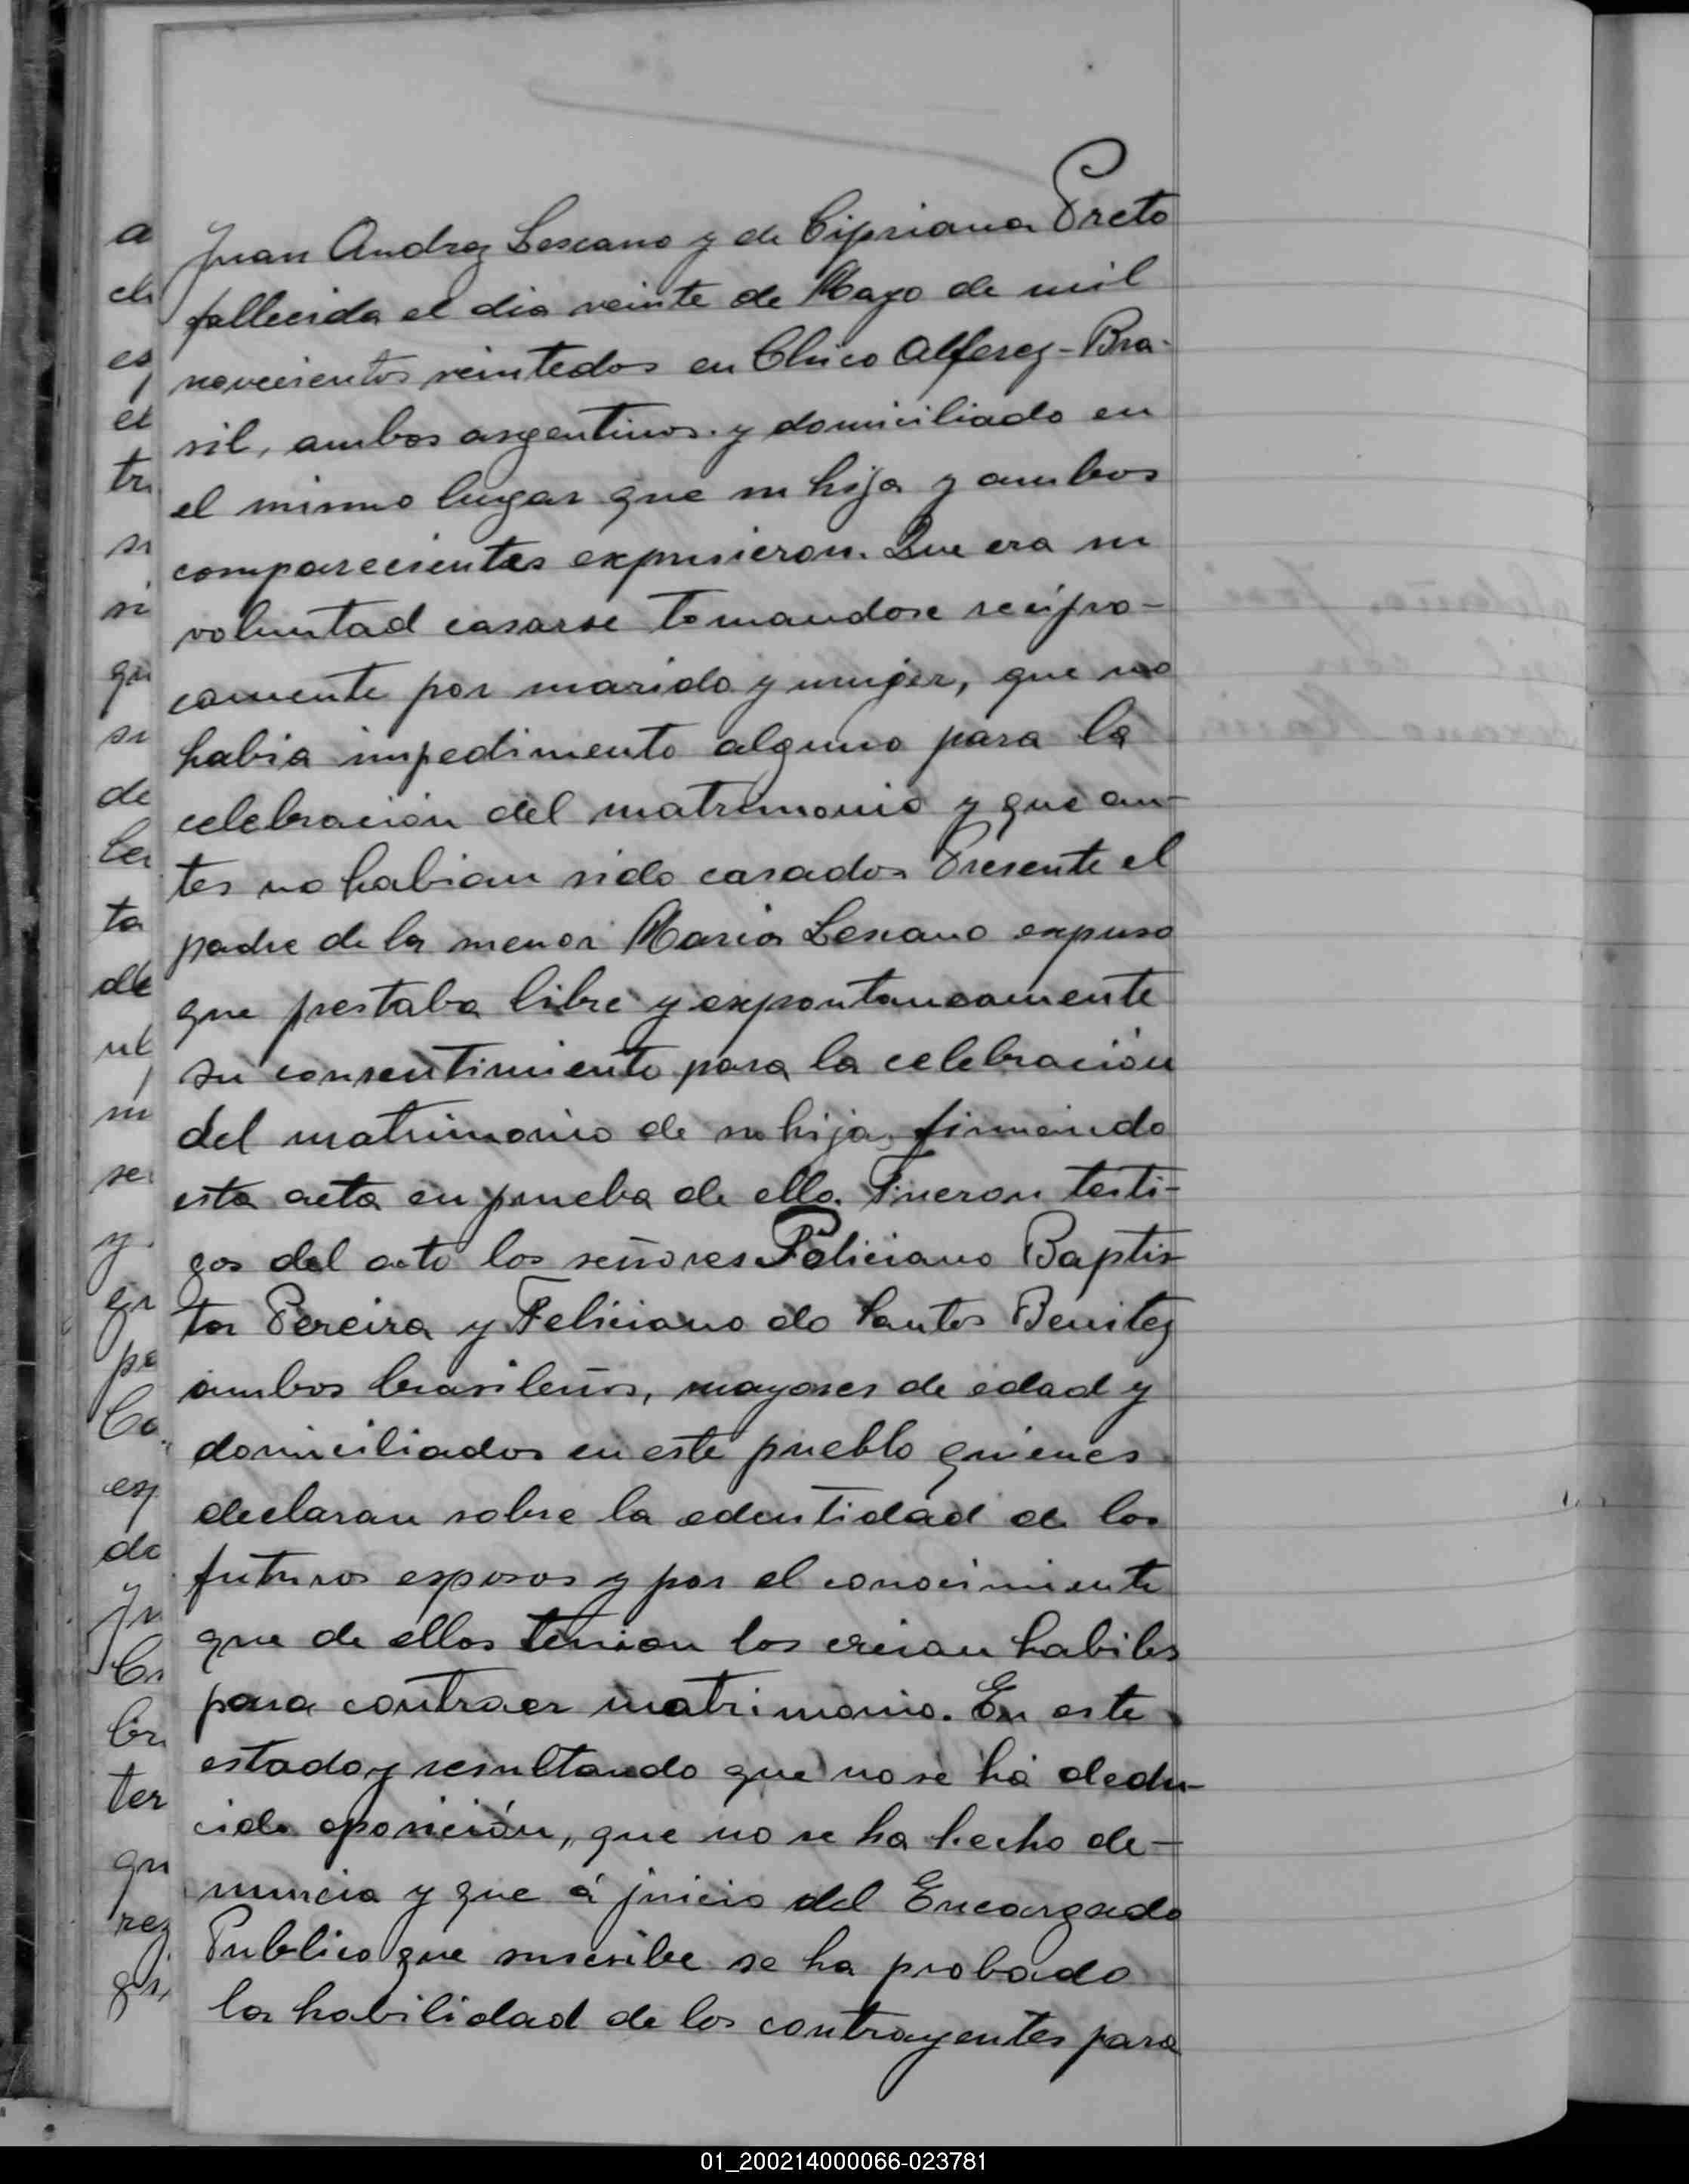 Juan Andrez Lescano y de Cipriana Preto
fallecida el dia veinte de Mayo de mil
novecientos veintedos en Chico Alferez-Bra-
sil, ambos argentinos y domiciliado en
el mismo lugar que su hija y ambos
comparecientes expusieron. Que era su
voluntad casarse tomandose recipro-
camente por marido y mujer, que no
habia impedimento alguno para la
celebración del matrimonio y que an-
tes no habian sido casados Presente el
padre de la menor Maria Lescano expuso
que prestaba libre y expontaneamente
su consentimiento para la celebración
del matrimonio de su hija, firmando
esta acta en prueba de ello. Fueron testi-
gos del acto los señores Feliciano Baptis
ta Pereira y Feliciano do Santos Benitez
ambos brasileños, mayores de edad y
domiciliados en este pueblo quienes
declaran sobre la edentidad de los
futuros esposos y por el conocimiento
que de ellos tenian los creian habiles
para contraer matrimonio. En este
estado y resultando que no se há dedu-
cido oposición, que no se ha hecho de-
nuncia y que á juicio del Encargado
Publico que suscribe se ha probado
la habilidad de los contrayentes para
01_200214000066-023781